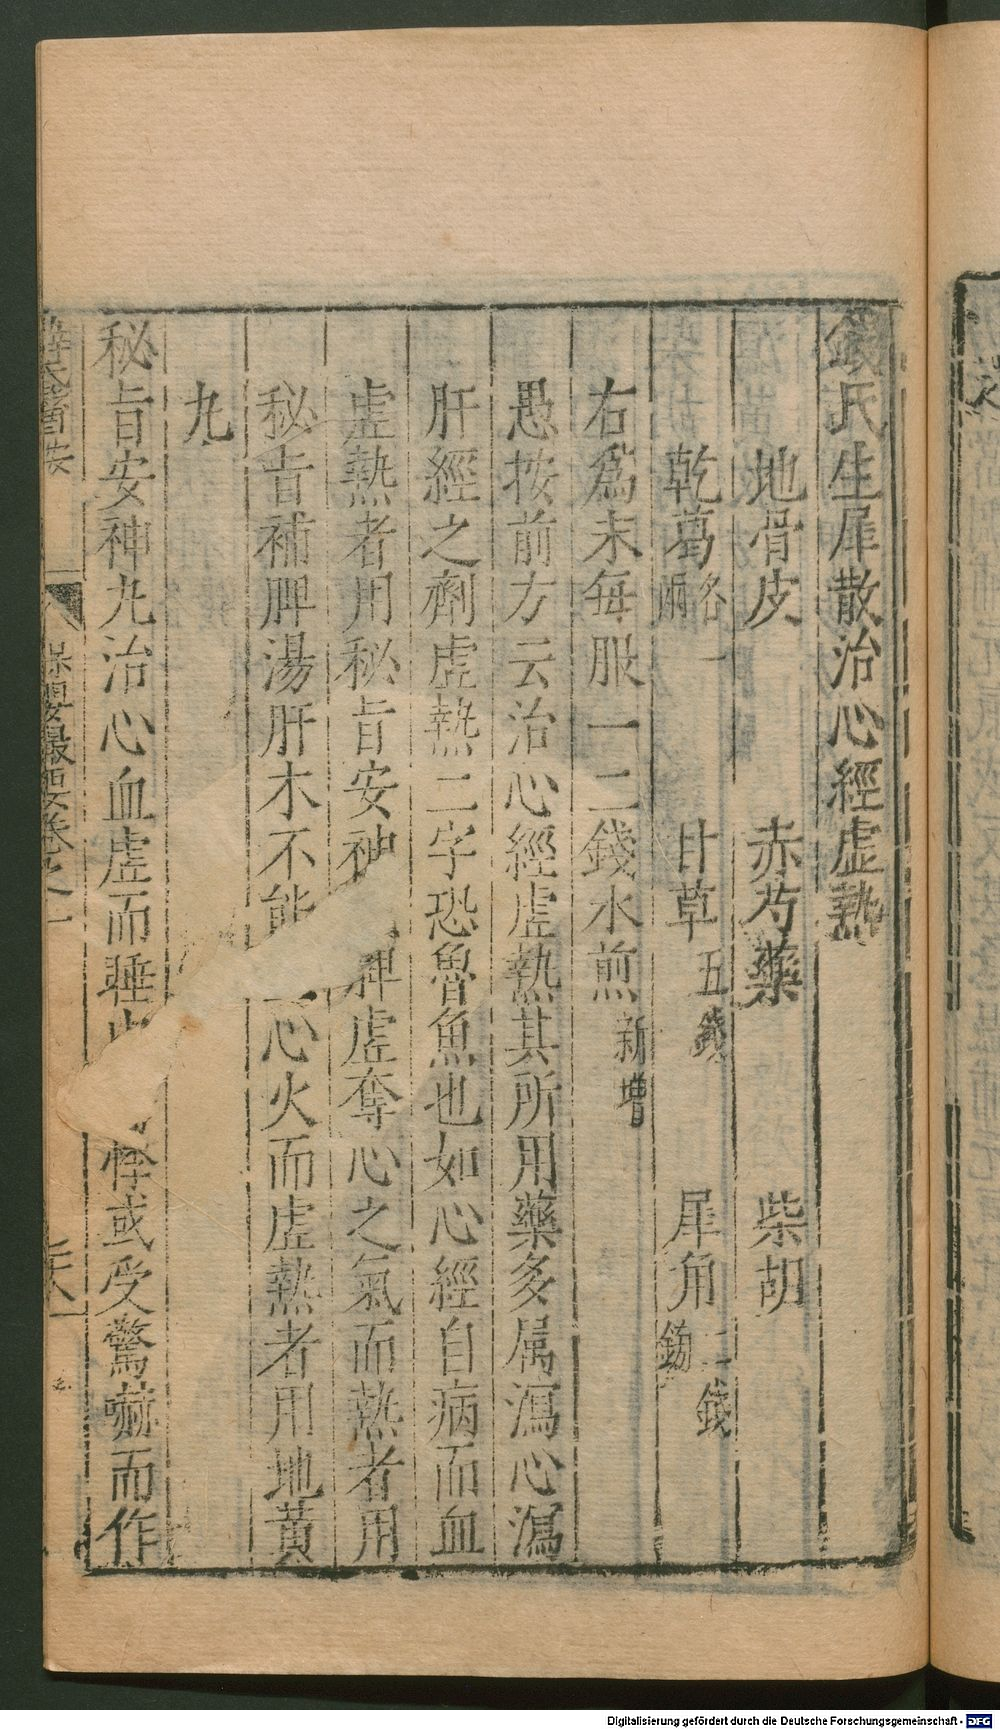 錢氏生犀散治心經虛熱
地骨皮 赤芍藥 柴胡
乾葛各一兩 甘草五錢 犀角二錢鎊
右為末每服一二錢水煎新增
愚按前方云治心經虛熱其所用藥多属瀉心瀉
肝經之劑虛熱二字恐魯魚也如心經自病而血
虛熱者用秘旨安神 脾虛奪心之氣而熱者用
秘旨補脾湯肝木不能 心火而虛熱者用地黃
九
秘旨安神九治心血虛而睡 悸或受驚嚇而作
保嬰撮要卷之一
Digitalisierung gefördert durch die Deutsche Forschungsgemeinschaft - DFG